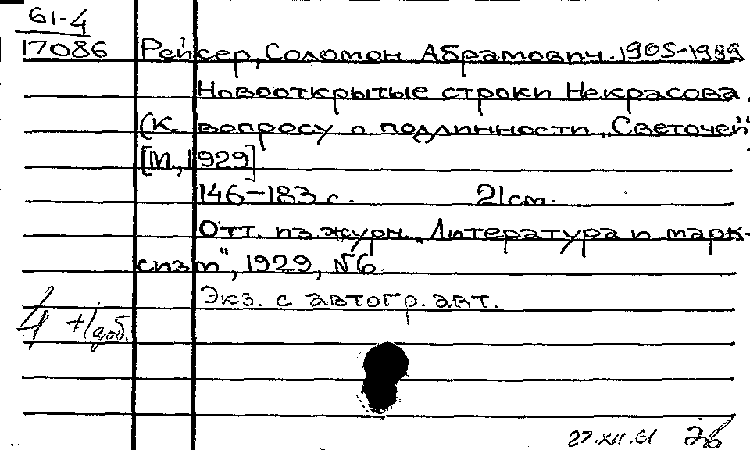 61-4
17086 Рейсер, Соломон Абрамович. 1905-1989
Новооткрытые строки Некрасова.
(К вопросу о подлинности „Светочей"
[М., 1929]
146-183 с. 21 см.
Отт. из журн. „Литература и марк-
сизм", 1929, №6.
Экз. с автогр. авт.
4 +1 доб.
27.XII.61